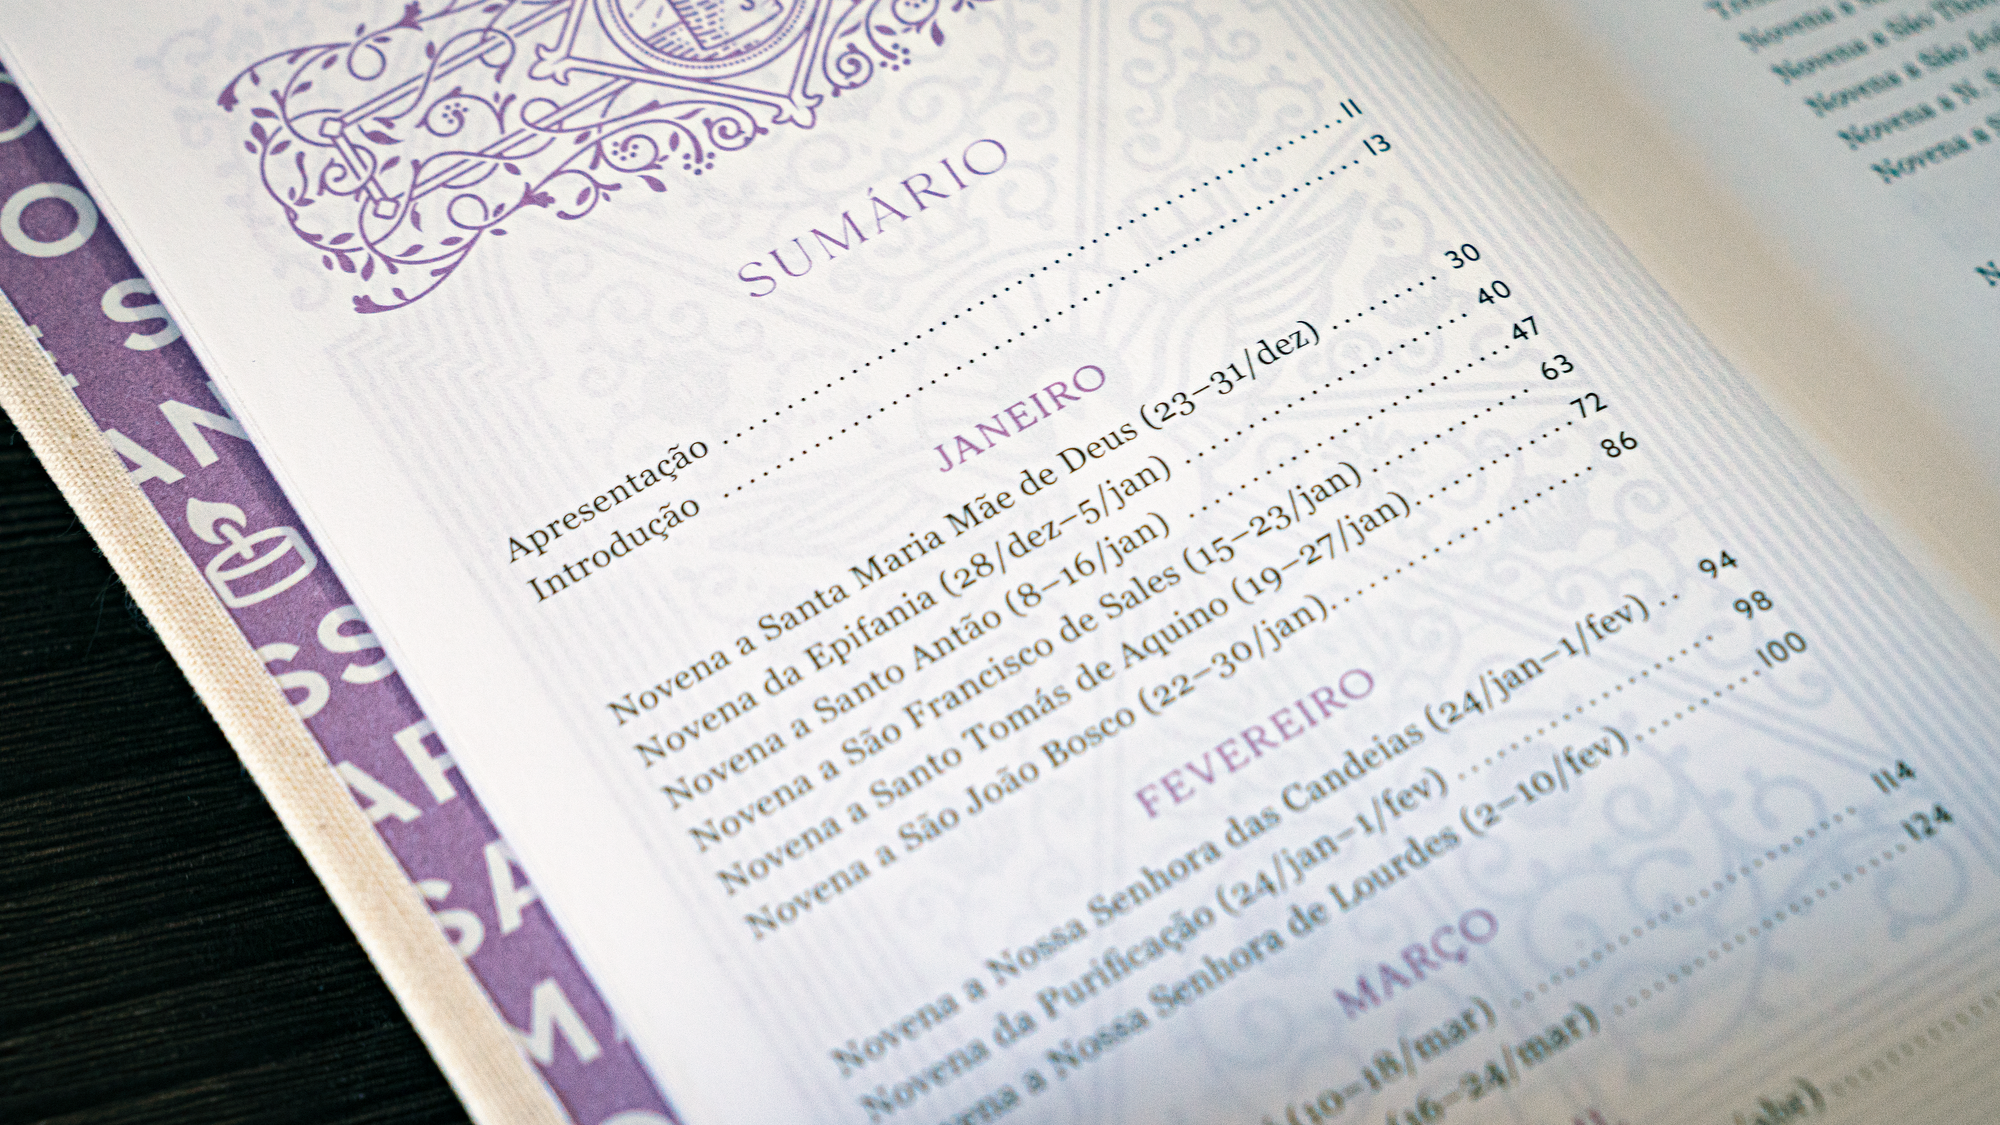 SUMÁRIO
Apresentação ........ 11
Introdução ........ 13
JANEIRO
Novena a Santa Maria Mãe de Deus (23–31/dez) ........ 30
Novena da Epifania (28/dez–5/jan) ........ 40
Novena a Santo Antão (8–16/jan) ........ 47
Novena a São Francisco de Sales (15–23/jan) ........ 63
Novena a Santo Tomás de Aquino (19–27/jan) ........ 72
Novena a São João Bosco (22–30/jan) ........ 86
FEVEREIRO
Novena a Nossa Senhora das Candeias (24/jan–1/fev) .. 94
Novena da Purificação (24/jan–1/fev) ........ 98
Novena a Nossa Senhora de Lourdes (2–10/fev) ........ 100
MARÇO
(10–18/mar) ........ 114
(16–24/mar) ........ 124
Novena a
Novena a São
Novena a São
Novena a N. S.
Novena a
Novena a